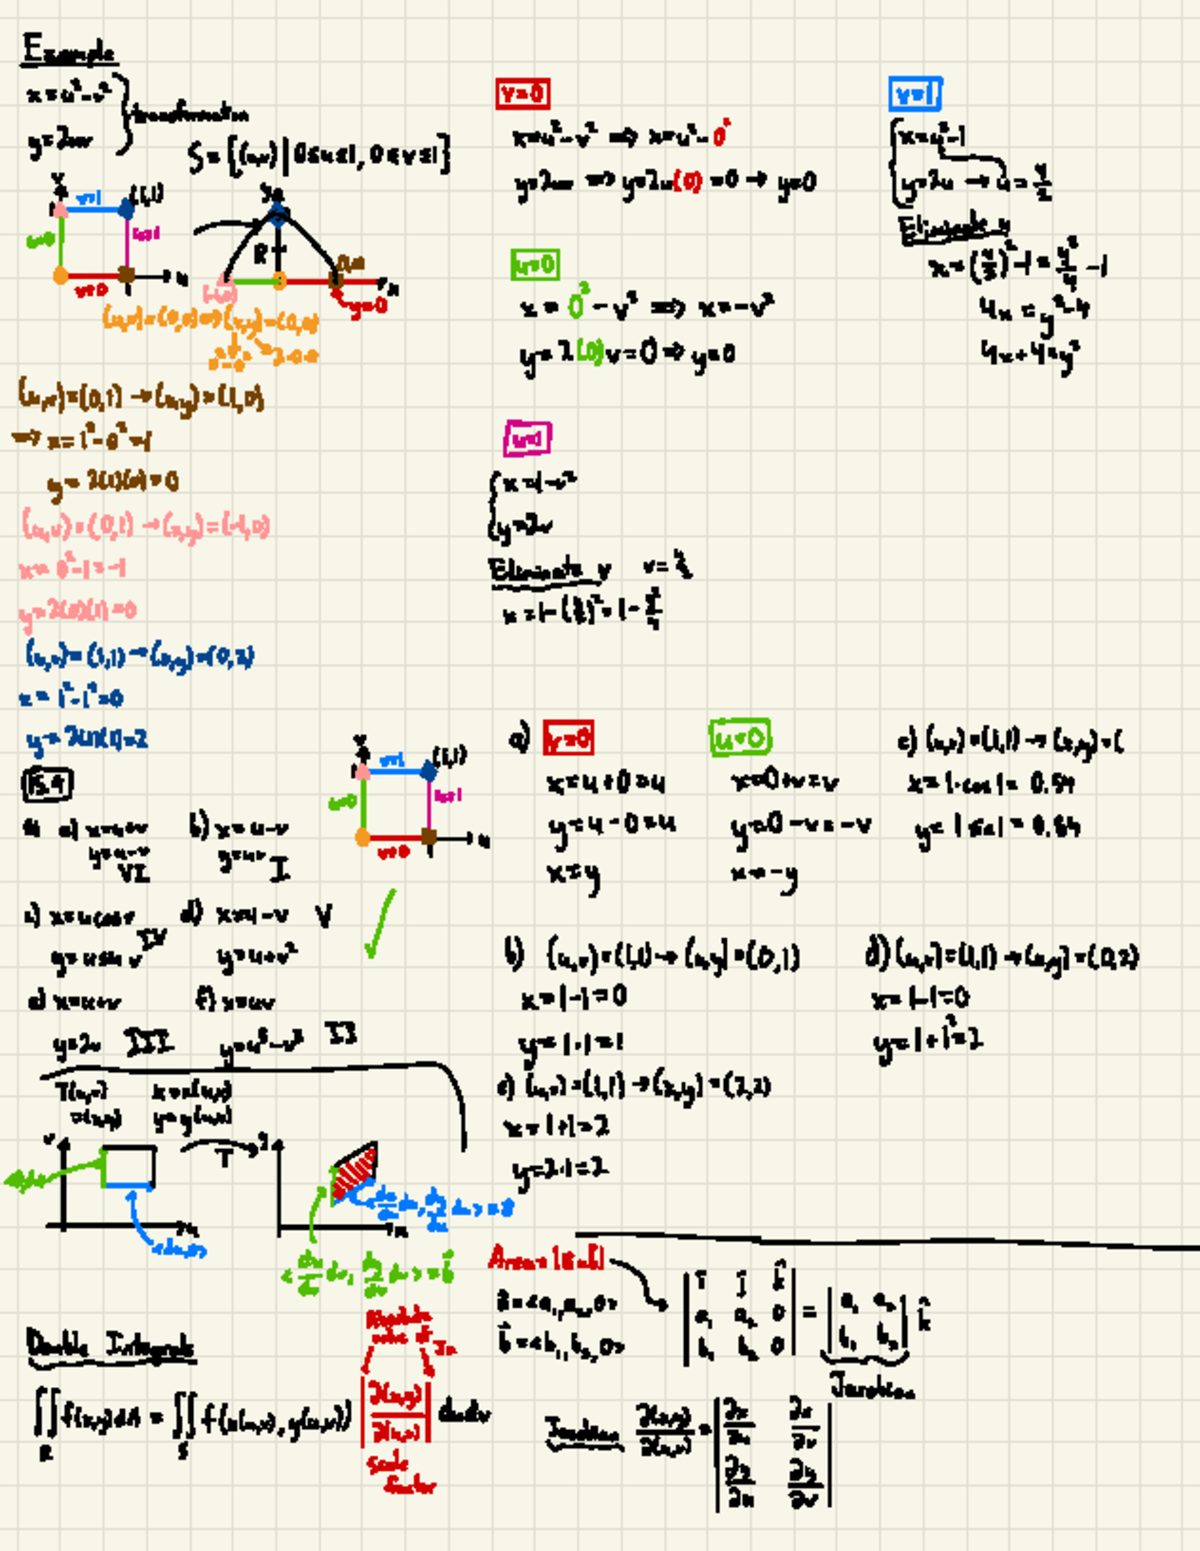 Example
x=u²-v²
y=2uv
transformation
S={(u,v)|0≤u≤1, 0≤v≤1}
v
v=1
(1,1)
u=0
u=1
v=0
u
y
R
(-1,0)
(1,0)
x
y=0
(u,v)=(0,0)⇒(x,y)=(0,0)
(u,v)=(0,1)→(x,y)=(1,0)
⇒x=1²-0²=1
y=2(1)(0)=0
(u,v)=(0,1)→(x,y)=(-1,0)
x=0²-1=-1
y=2(0)(1)=0
(u,v)=(1,1)→(x,y)=(0,2)
x=1²-1²=0
y=2(1)(1)=2
v=0
x=u²-v² ⇒ x=u²-0²
y=2uv ⇒ y=2u(0)=0→y=0
u=0
x=0²-v² ⇒ x=-v²
y=2(0)v=0⇒y=0
u=1
x=1-v²
y=2v
Eliminate v v=y/2
x=1-(y/2)²=1-y²/4
v=1
x=u²-1
y=2u→u=y/2
Eliminate u
x=(y/2)²-1=y²/4-1
4x=y²-4
4x+4=y²
15.9
a) x=u+v
y=u-v
VI
b) x=u-v
y=uv
I
c) x=u cos v
y=u sin v
IV
d) x=u-v
V
y=u+v²
e) x=u+v
y=2v III
f) x=uv
y=u³-v³ II
v
v=1
(1,1)
u=0
u=1
v=0
u
a) v=0
x=u+0=u
y=u-0=u
x=y
u=0
x=0+v=v
y=0-v=-v
x=-y
c) (u,v)=(1,1)→(x,y)=(
x=1·cos1=0.54
y=1sin1=0.84
b) (u,v)=(1,1)→(x,y)=(0,1)
x=1-1=0
y=1·1=1
d) (u,v)=(1,1)→(x,y)=(0,2)
x=1-1=0
y=1+1²=2
e) (u,v)=(1,1)→(x,y)=(2,2)
x=1+1=2
y=2·1=2
T(u,v)
=(x,y)
x=x(u,v)
y=y(u,v)
v
u
T
y
x
<du,0>
Area=|a×b|
a=<a₁,a₂,0>
b=<b₁,b₂,0>
|i j k|
|a₁ a₂ 0|
|b₁ b₂ 0|
= |a₁ a₂|
|b₁ b₂| k
Jacobian
Double Integrals
∬f(x,y)dA = ∬f(x(u,v),y(u,v)) |∂(x,y)/∂(u,v)| dudv
R S
Absolute
value of
scale
factor
Jacobian ∂(x,y)/∂(u,v) = |∂x/∂u ∂x/∂v|
|∂y/∂u ∂y/∂v|